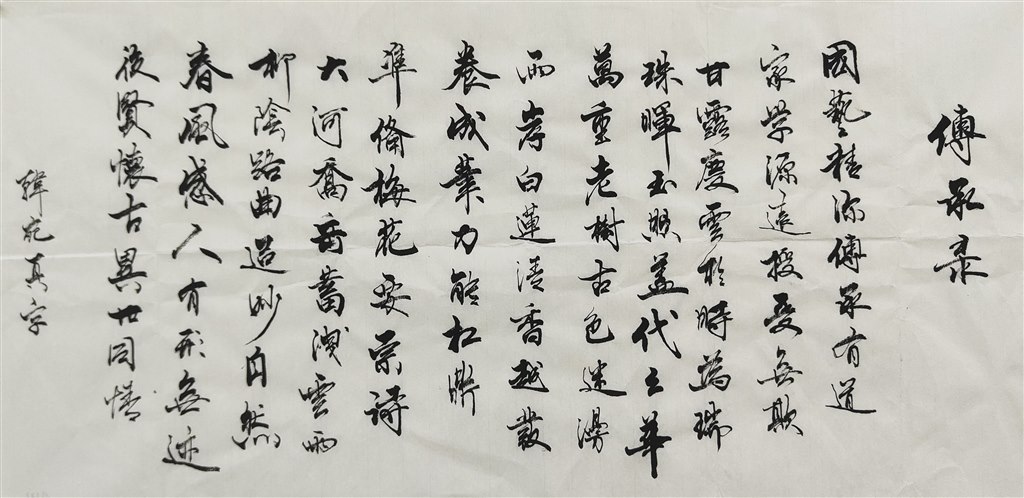 傳承录
國藝精深傳承有道
家學源遠授受無欺
甘露慶雲於時為瑞
珠暉玉照蓋代之華
萬重老樹古色迷漫
兩岸白蓮清香越發
養成業力能杠鼎
準備梅花要索詩
大河喬岳蓄洩雲雨
柳陰路曲過妙自然
春風感人有形無迹
後賢懷古異世同情
真字